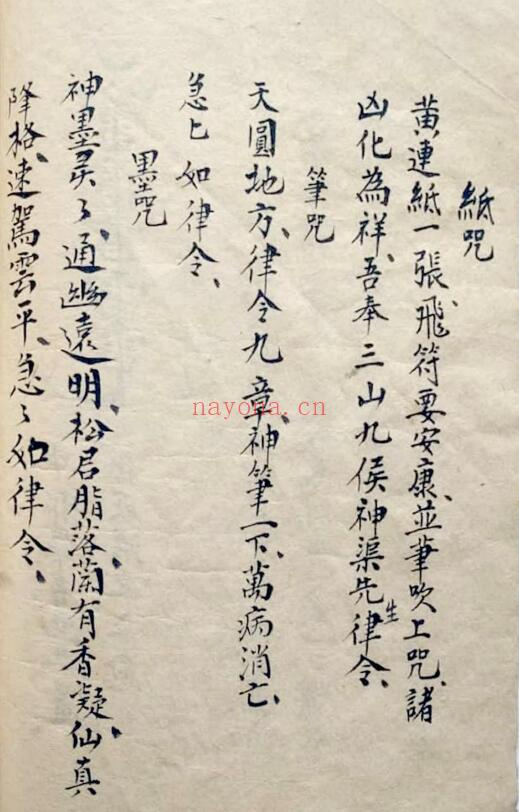 紙咒
黄連紙一張、飛符要安康、並筆吹上咒、諸
凶化為祥、吾奉三山九侯神渠先生律令、
筆咒
天圓地方、律令九章、神筆一下、萬病消亡、
急匕如律令、
墨咒
神墨灵〻、通幽遠明、松君脂落、蘭有香凝、仙真
降格、速駕雲平、急〻如律令、
nayona.cn